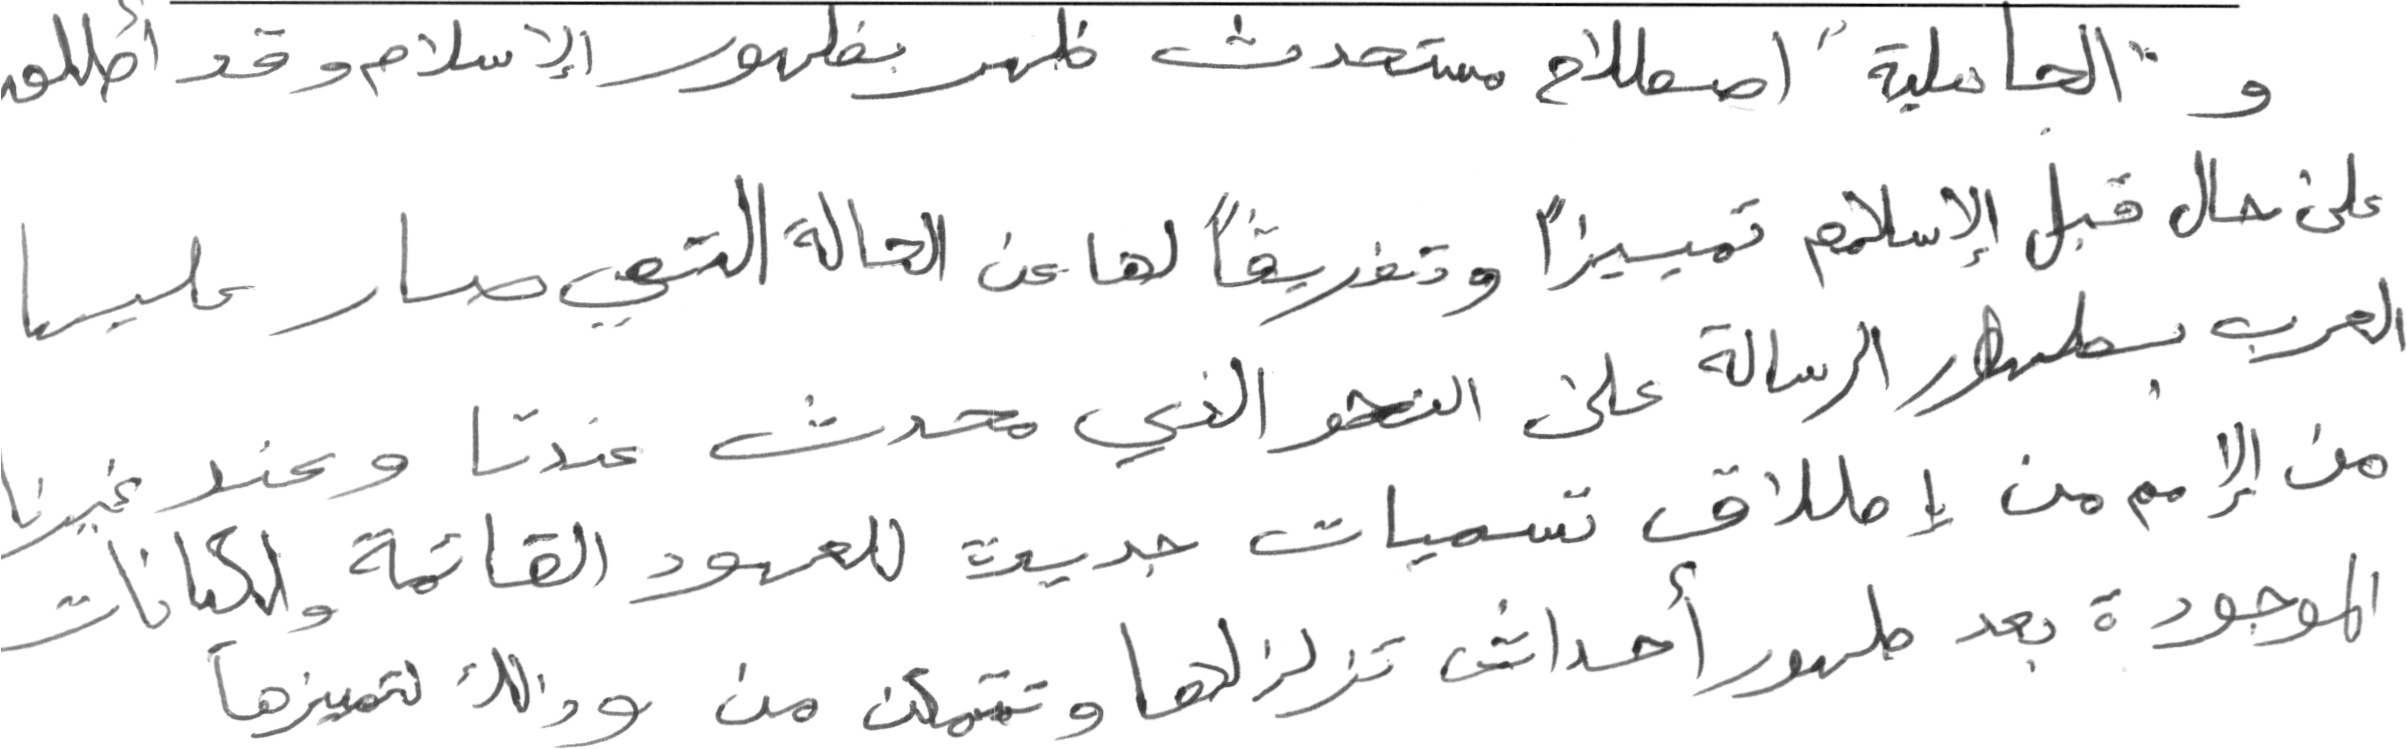 و "الجاهلية" اصطلاح مستحدث ظهر بظهور الإسلام وقد أطلق
على حال قبل الإسلام تمييزاً وتفريقاً لها عن الحالة التي صار عليها
العرب بظهور الرسالة على النحو الذي محدث عندنا وعند غيرنا
من الإمم من إطلاق تسميات جديدة للعهود القائمة والكيانات
الموجودة بعد ظهور أحداث تزلزلها وتتمكن من وذلك لتميزها